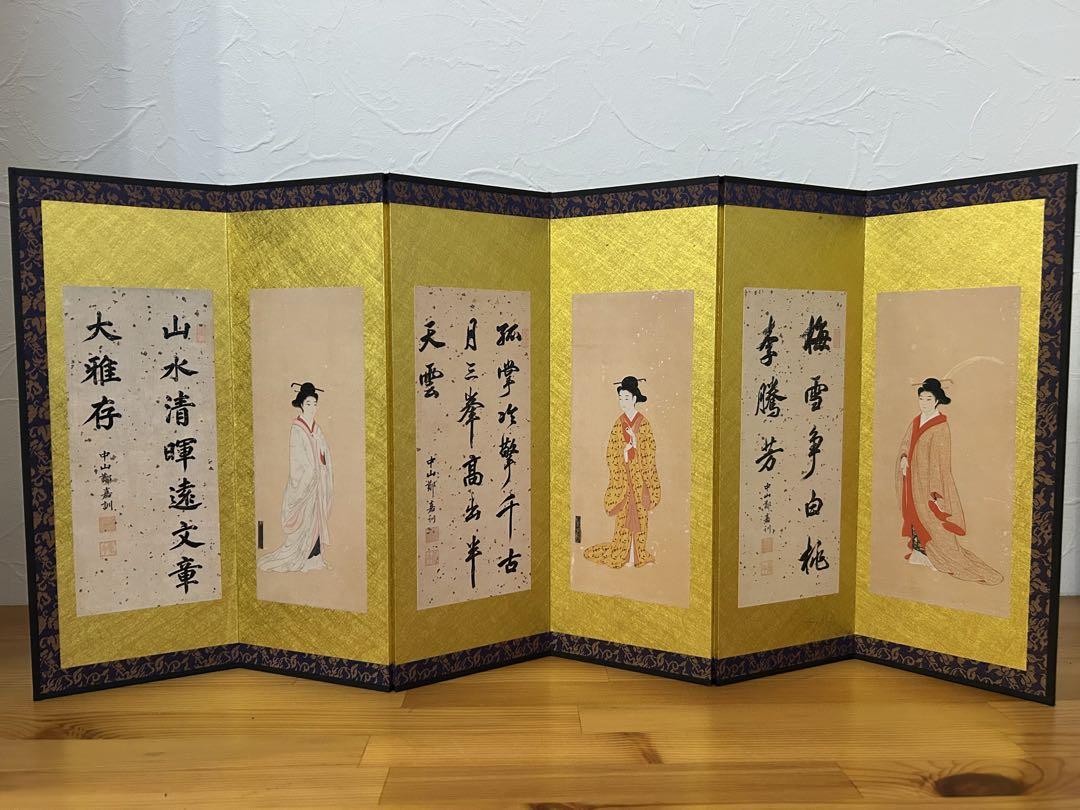 梅雪争白桃
李騰芳
中山鄭嘉訓
孤掌冷擎千古
月三峯高出半
天雲
中山鄭嘉訓
山水清暉遠文章
大雅存
中山鄭嘉訓